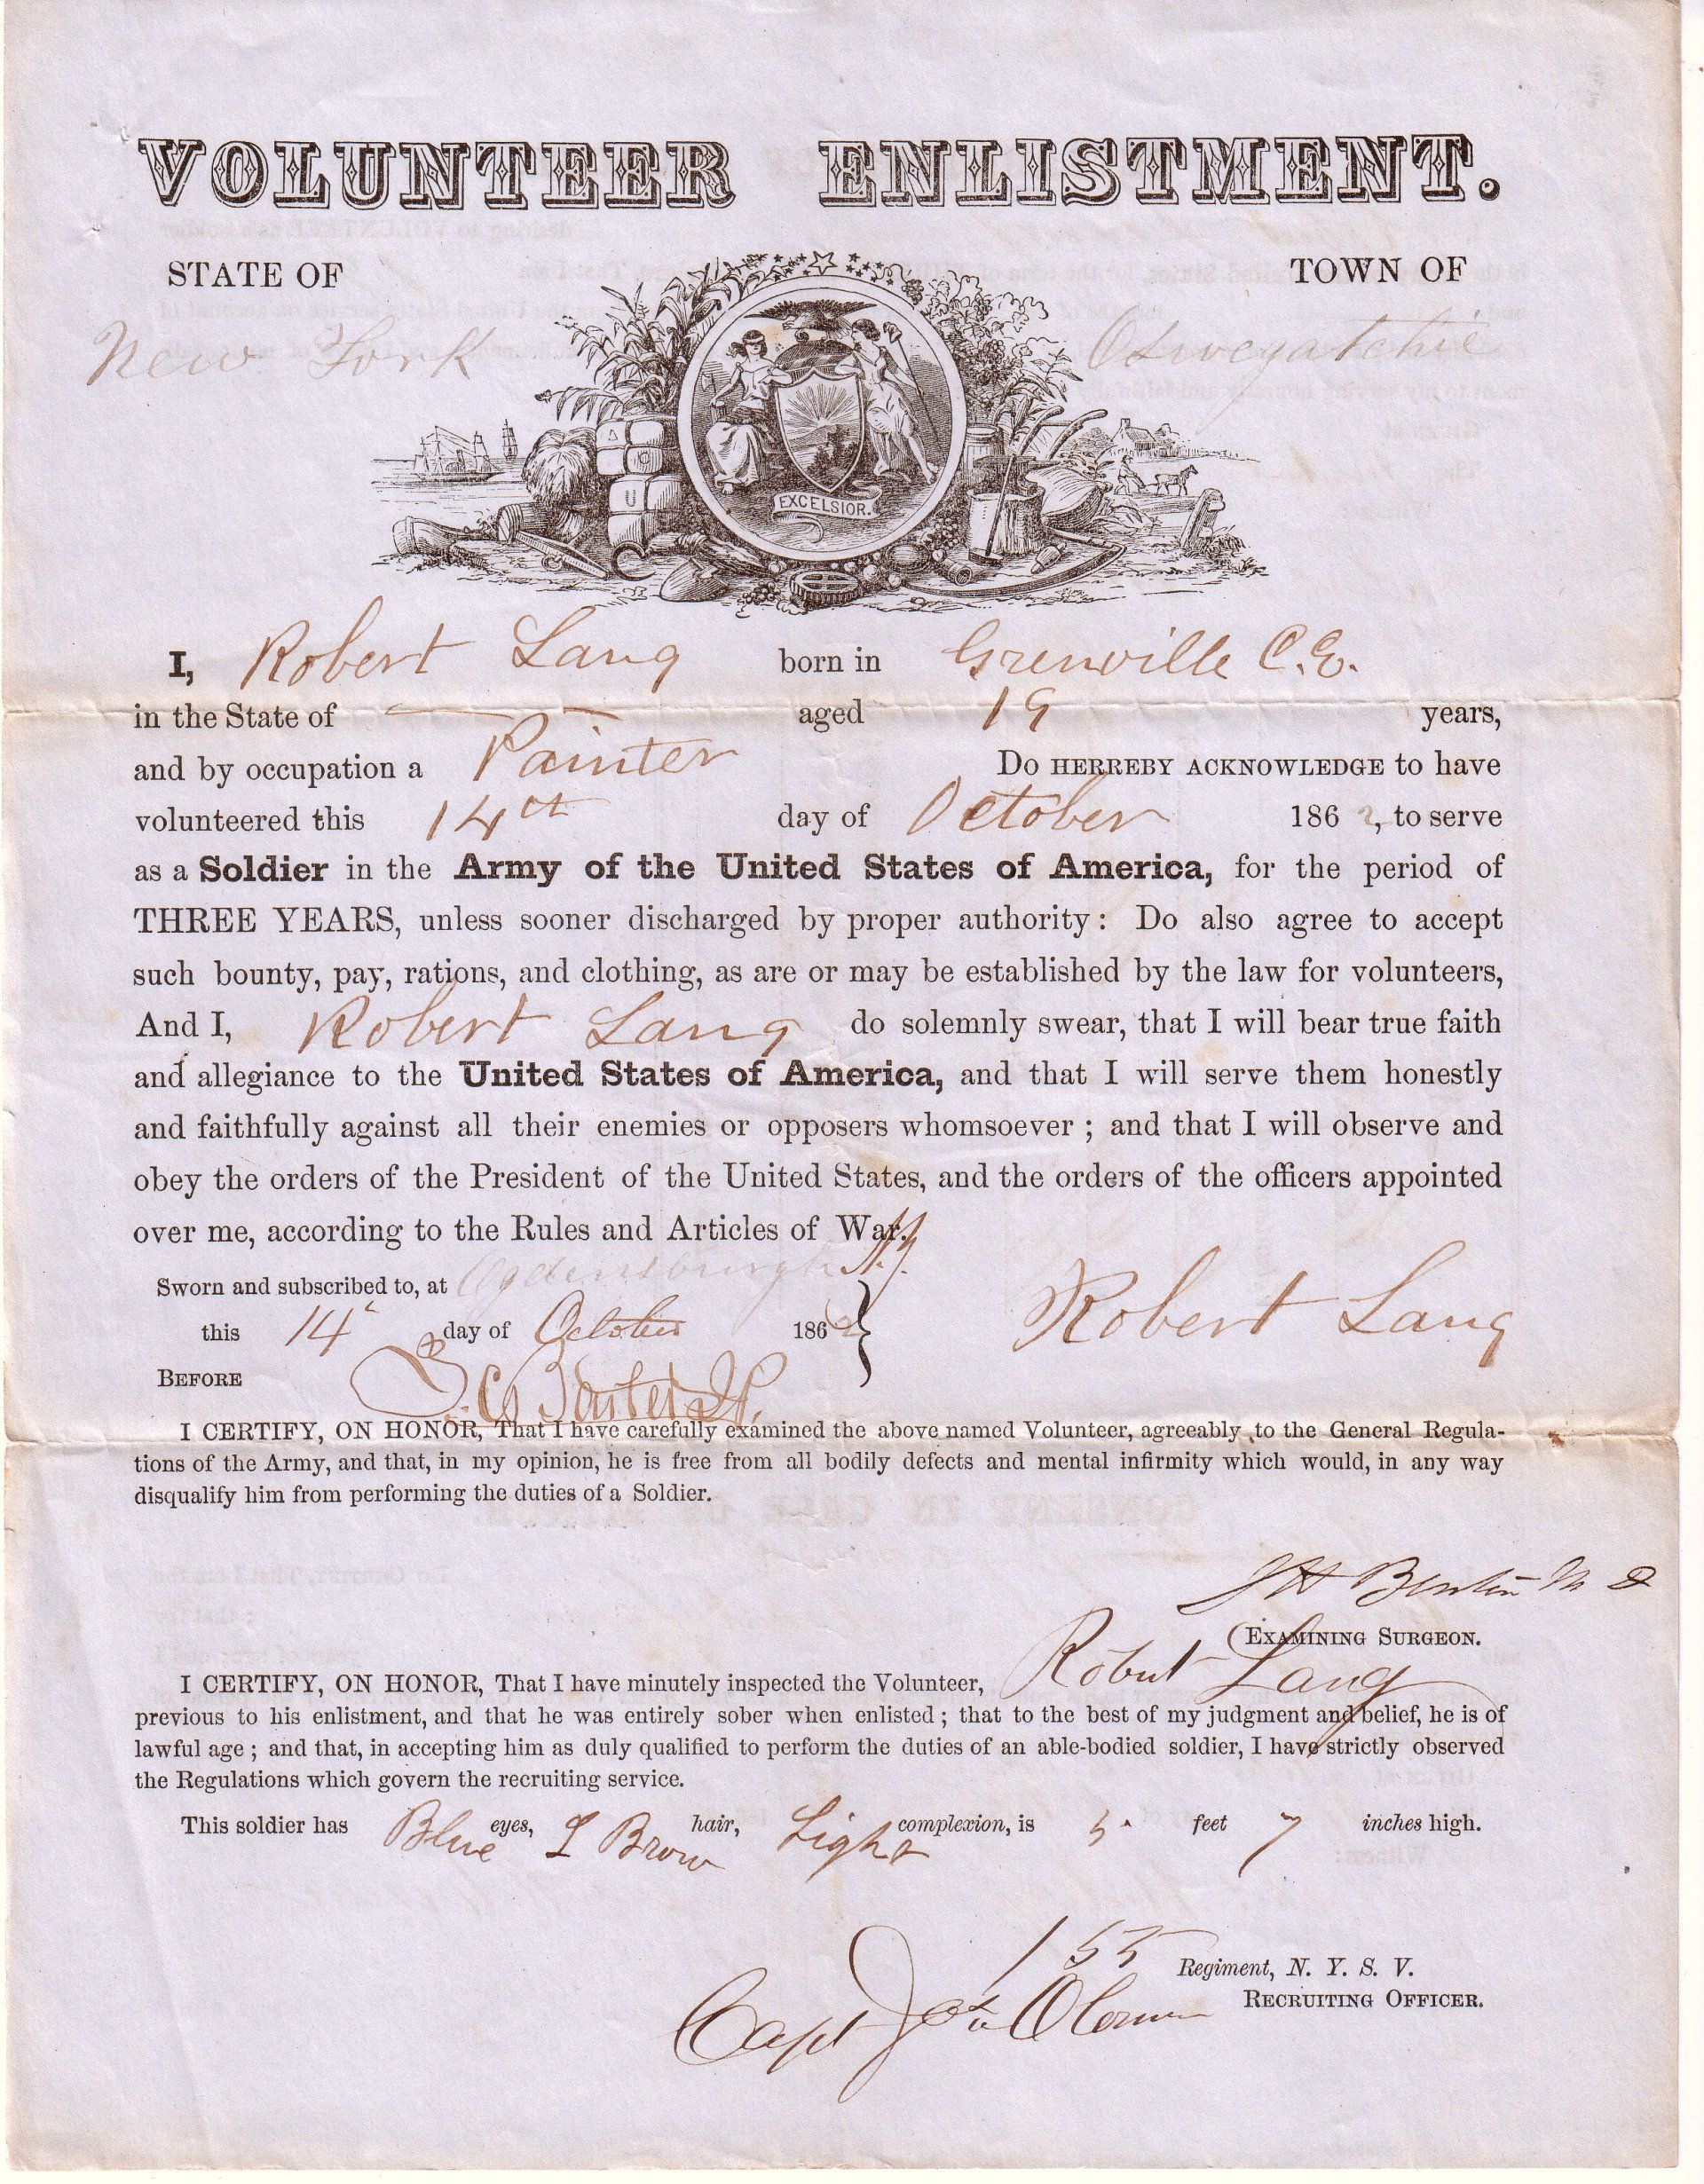 VOLUNTEER ENLISTMENT.
STATE OF
TOWN OF
New York
Oswegatchie
A
C
U
EXCELSIOR.
I, Robert Lang born in Grenville C.E.
in the State of — — aged 19 years,
and by occupation a Painter Do HERREBY ACKNOWLEDGE to have
volunteered this 14th day of October 1862, to serve
as a Soldier in the Army of the United States of America, for the period of
THREE YEARS, unless sooner discharged by proper authority: Do also agree to accept
such bounty, pay, rations, and clothing, as are or may be established by the law for volunteers,
And I, Robert Lang do solemnly swear, that I will bear true faith
and allegiance to the United States of America, and that I will serve them honestly
and faithfully against all their enemies or opposers whomsoever; and that I will observe and
obey the orders of the President of the United States, and the orders of the officers appointed
over me, according to the Rules and Articles of War.
Sworn and subscribed to, at Ogdensburgh N.Y.
this 14 day of October 1862
Robert Lang
BEFORE
I CERTIFY, ON HONOR, That I have carefully examined the above named Volunteer, agreeably to the General Regula-
tions of the Army, and that, in my opinion, he is free from all bodily defects and mental infirmity which would, in any way
disqualify him from performing the duties of a Soldier.
M D
EXAMINING SURGEON.
I CERTIFY, ON HONOR, That I have minutely inspected the Volunteer, Robert Lang
previous to his enlistment, and that he was entirely sober when enlisted; that to the best of my judgment and belief, he is of
lawful age; and that, in accepting him as duly qualified to perform the duties of an able-bodied soldier, I have strictly observed
the Regulations which govern the recruiting service.
This soldier has Blue eyes, L Brown hair, Light complexion, is 5. feet 7 inches high.
155 Regiment, N. Y. S. V.
Capt RECRUITING OFFICER.